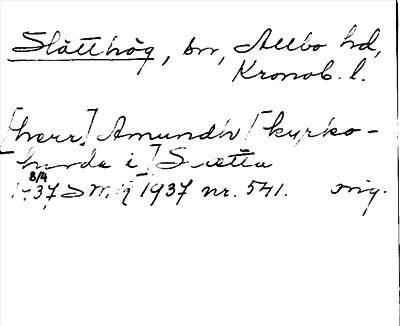 Slätthög, sn, Allbo hd,
Kronob. l.
[herr] Amundh [kyrko-
herde i] Slætta
8/4
1937 nr. 541. orig.